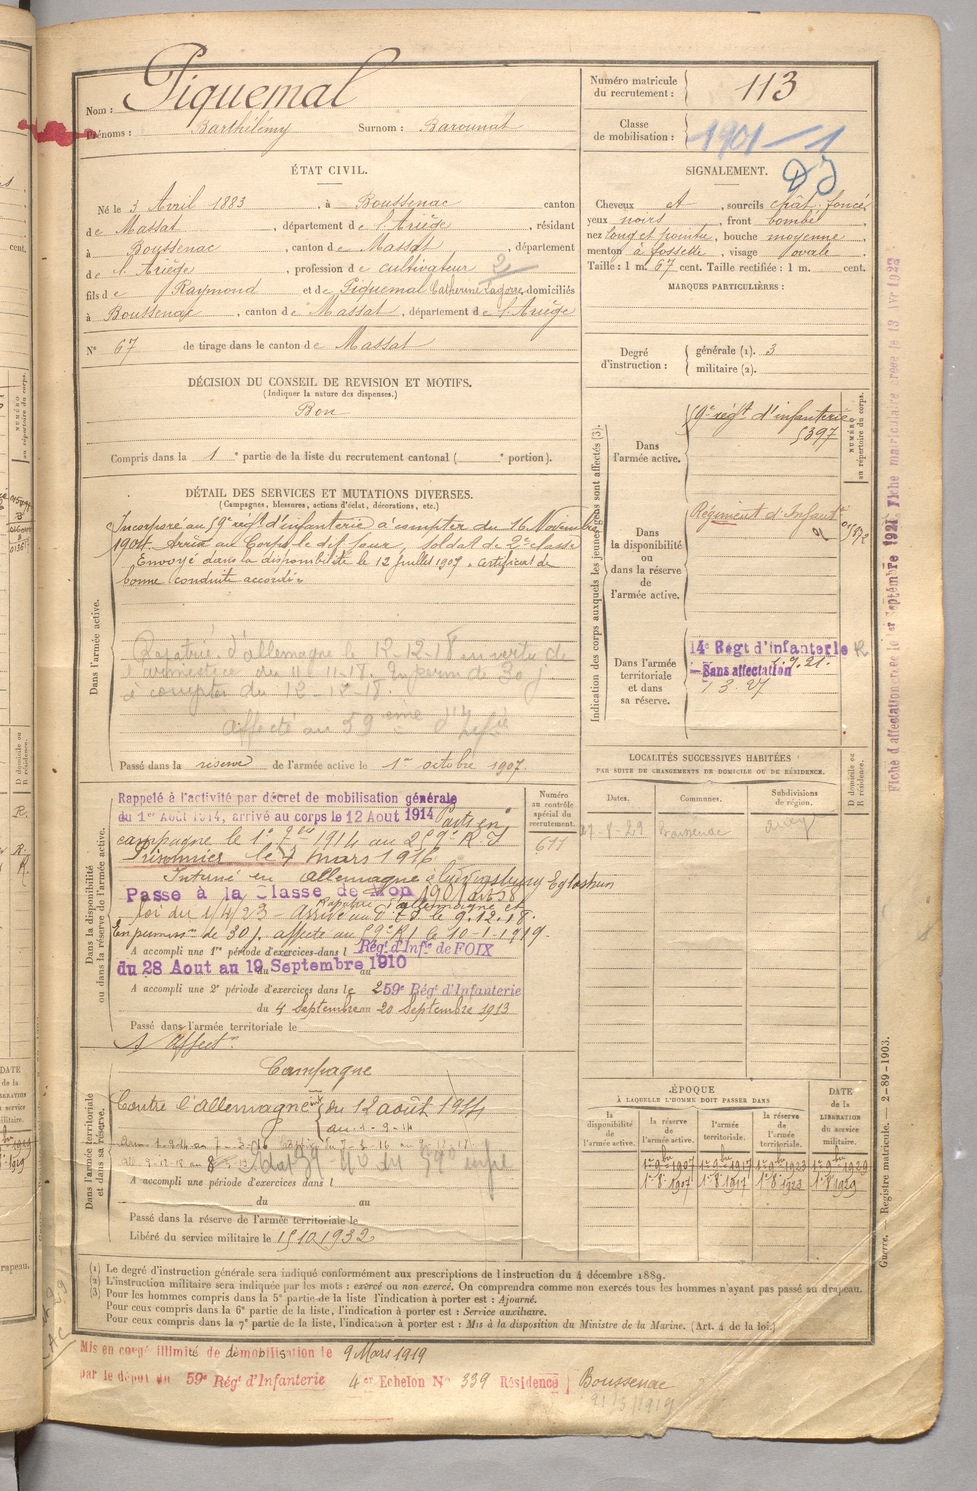 Nom : Piquemal
Prénoms : Barthélémy Surnom : Barounat
Numéro matricule du recrutement : 113
Classe de mobilisation : 1901 — 1
ÉTAT CIVIL.
Né le 3 Avril 1883, à Boussenac canton
de Massat, département de l'Ariège, résidant
à Boussenac, canton de Massat, département
de l'Ariège, profession de cultivateur 2
fils de Raymond et de Piquemal Catherine Lagorre, domiciliés
à Boussenac, canton de Massat, département de l'Ariège
N° 67 de tirage dans le canton de Massat
SIGNALEMENT.
Cheveux et, sourcils chât. foncé
yeux noirs, front bombé
nez long et pointu, bouche moyenne,
menton à fossette, visage ovale.
Taille : 1 m. 67 cent. Taille rectifiée : 1 m. cent.
MARQUES PARTICULIÈRES :
Degré d'instruction : générale (1). 3
militaire (2).
DÉCISION DU CONSEIL DE REVISION ET MOTIFS.
(Indiquer la nature des dispenses.)
Bon
Compris dans la 1e partie de la liste du recrutement cantonal ( e portion).
DÉTAIL DES SERVICES ET MUTATIONS DIVERSES.
(Campagnes, blessures, actions d'éclat, décorations, etc.)
Dans l'armée active.
Incorporé au 59e régt d'infanterie à compter du 16 Novembre
1904. Arrivé au Corps le dit jour, soldat de 2e classe
Envoyé dans la disponibilité le 12 Juillet 1907. Certificat de
bonne conduite accordé.
Rapatrié d'allemagne le 12-12-18 en vertu de
l'armistice du 11-11-18. En perm de 30 j
à compter du 12-12-18.
Affecté au 59ème d'Infie
Passé dans la réserve de l'armée active le 1er octobre 1907.
Indication des corps auxquels les jeunes gens sont affectés (3).
NUMÉRO au répertoire du corps.
Dans l'armée active.
59e régt d'infanterie
5397
Dans la disponibilité ou dans la réserve de l'armée active.
Régiment d'Infant
Dans l'armée territoriale et dans sa réserve.
14e Régt d'infanterie R
Sans affectation 1.9.21.
Fiche d'affectation créée le 1er Septembre 1921
LOCALITÉS SUCCESSIVES HABITÉES
PAR SUITE DE CHANGEMENTS DE DOMICILE OU DE RÉSIDENCE.
Dates. Communes. Subdivisions de région. D domicile ou R résidence.
27-8-29 Boussenac
Dans la disponibilité ou dans la réserve de l'armée active.
Numéro au contrôle spécial du recrutement.
611
Rappelé à l'activité par décret de mobilisation générale
du 1er Août 1914, arrivé au corps le 12 Aout 1914 Parti en
campagne le 1er 7bre 1914 au 259e R.I
Prisonnier le 7 mars 1916
Interné en allemagne
Passé à la Classe de 1901 art 58
loi du 1/4/23 - Rapatrié d'allemagne et
Arrivé au D.t.I le 9.12.18.
En permissn de 30 j. affecté au 59e R I le 10-1-1919.
A accompli une 1re période d'exercices dans l Régt d'Infie de FOIX
du 28 Aout au 19 Septembre 1910
A accompli une 2e période d'exercices dans le 259e Régt d'Infanterie
du 4 Septembre au 20 Septembre 1913
Passé dans l'armée territoriale le
S affectn
Dans l'armée territoriale et dans sa réserve.
Campagne
Contre l'allemagne int du 12 août 1914
au 1-9-14
A accompli une période d'exercices dans l
du au
Passé dans la réserve de l'armée territoriale le
Libéré du service militaire le 15.10.1932
ÉPOQUE
À LAQUELLE L'HOMME DOIT PASSER DANS
la disponibilité de l'armée active. la réserve de l'armée active. l'armée territoriale. la réserve de l'armée territoriale. DATE de la LIBÉRATION du service militaire.
1er 9bre 1907 1er 9bre 1917 1er 9bre 1923 1er 9bre 1929
1er 8bre 1907 1er 8bre 1917 1er 8bre 1923 1er 8bre 1929
(1) Le degré d'instruction générale sera indiqué conformément aux prescriptions de l'instruction du 4 décembre 1889.
(2) L'instruction militaire sera indiquée par les mots : exercé ou non exercé. On comprendra comme non exercés tous les hommes n'ayant pas passé au drapeau.
(3) Pour les hommes compris dans la 5e partie de la liste l'indication à porter est : Ajourné.
Pour ceux compris dans la 6e partie de la liste, l'indication à porter est : Service auxiliaire.
Pour ceux compris dans la 7e partie de la liste, l'indication à porter est : Mis à la disposition du Ministre de la Marine. (Art. 4 de la loi.)
Guerre. — Registre matricule. — 2-89-1903.
Mis en congé illimité de démobilisation le 9 Mars 1919
par le dépôt du 59e Régt d'Infanterie 4er Echelon N° 339 Résidence Boussenac